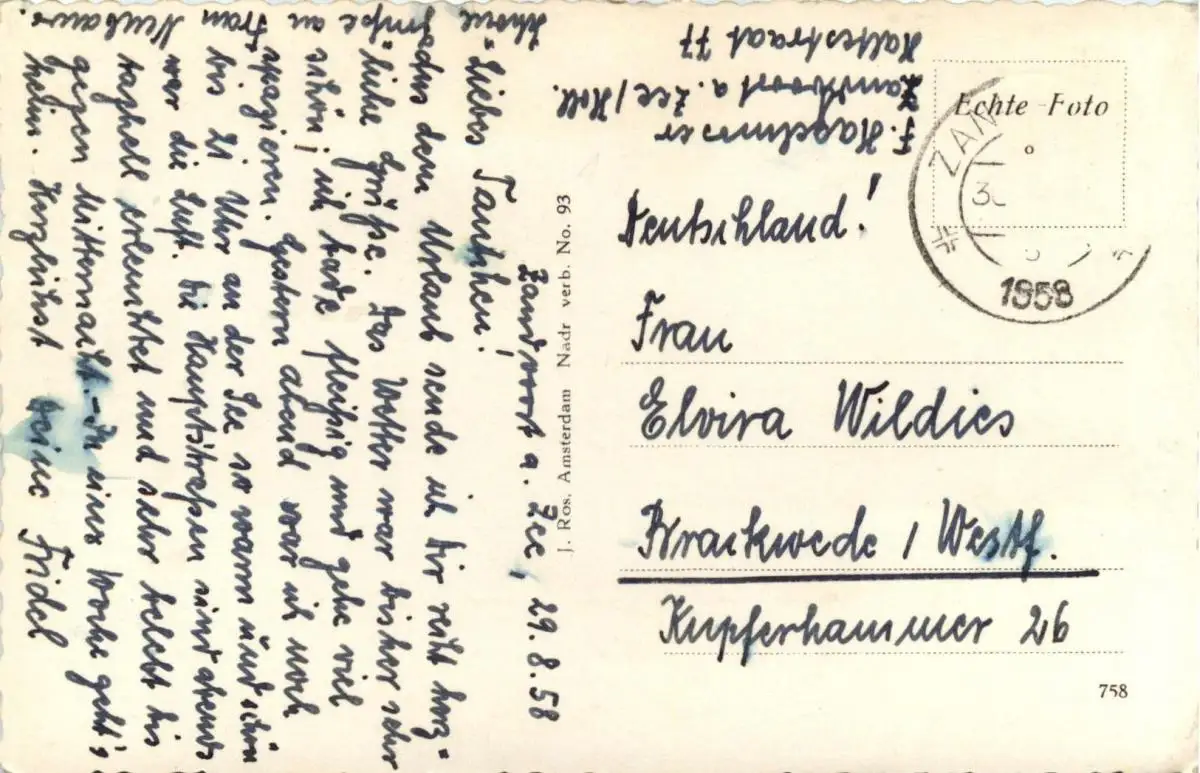 Zandvoort a. Zee, 29.8.58
Liebes Tantchen!
Aus dem Urlaub sende ich Dir recht herz=
liche Grüße. Das Wetter war bisher sehr
schön; ich bade fleißig und gehe viel
spazieren. Gestern abend war ich noch
bis 21 Uhr an der See so warm und schön
war die Luft. Die Hauptstraßen sind abends
taghell erleuchtet und sehr belebt bis
gegen Mitternacht. - In einer Woche geht's
heim. Herzlichst Deine Fridel
Schöne Grüße an Frau Neubauer.
J. Ros. Amsterdam Nadr verb. No. 93
F.
Zandvoort a. Zee / Holl.
Haltestraat 77
Echte Foto
ZAN
1958
Deutschland!
Frau
Elvira Wildies
Brackwede / Westf.
Kupferhammer 26
758